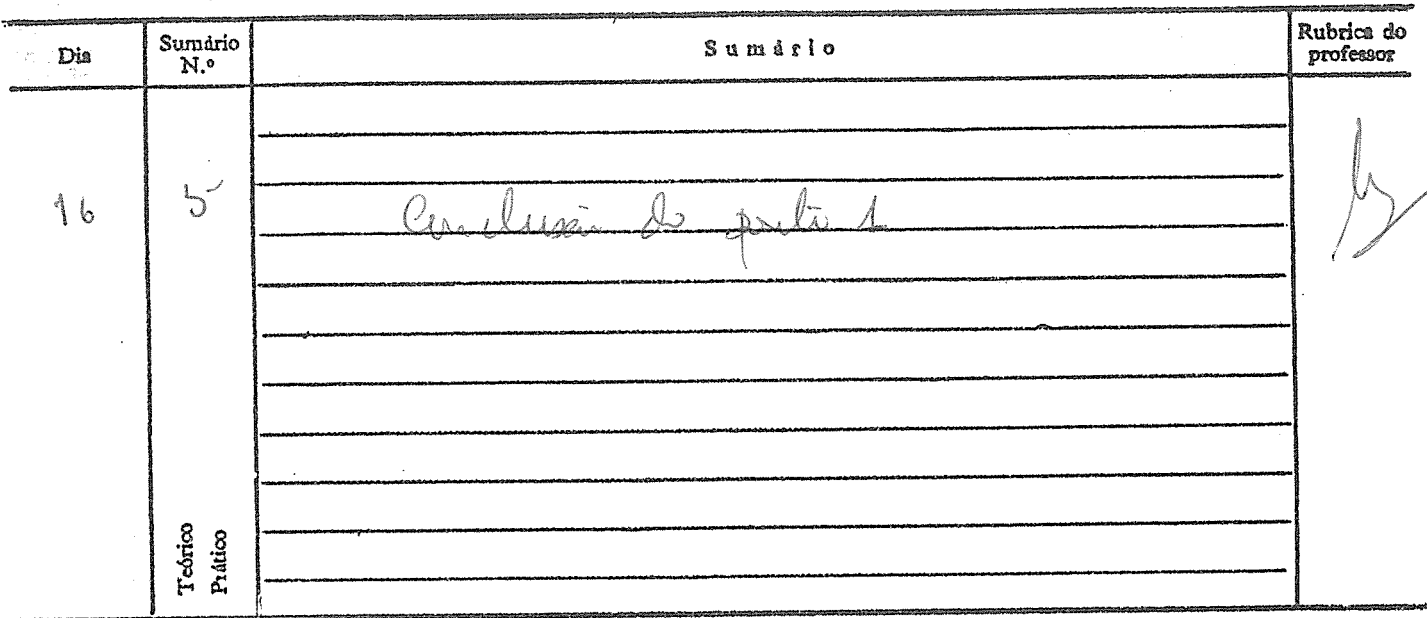 Dia
Sumário N.º
Sumário
Rubrica do professor
16
5
Conclusão do ponto 1
Teórico
Prático